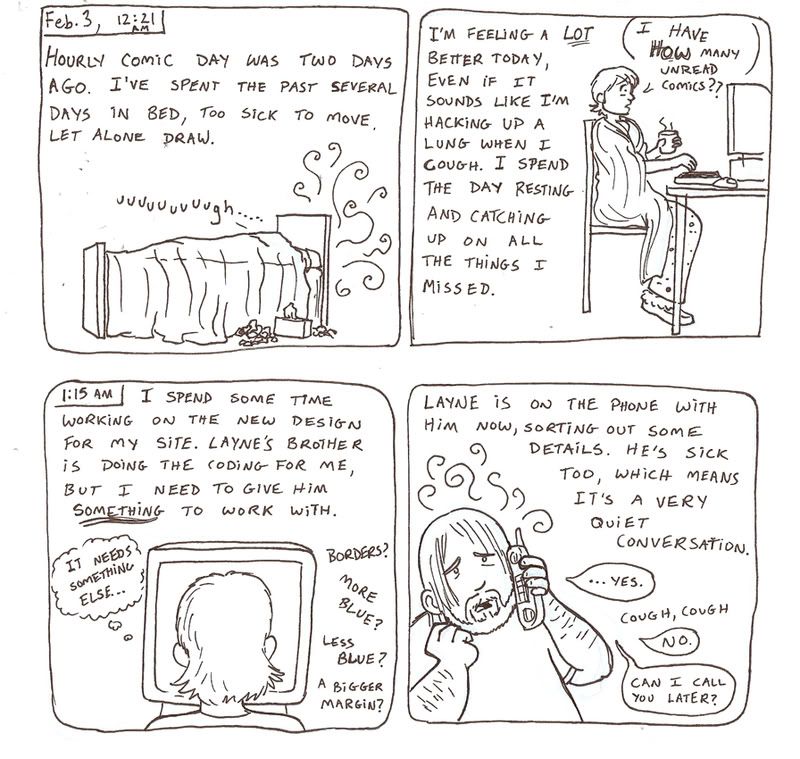 Feb. 3, 12:21 AM
HOURLY COMIC DAY WAS TWO DAYS
AGO. I'VE SPENT THE PAST SEVERAL
DAYS IN BED, TOO SICK TO MOVE,
LET ALONE DRAW.
uuuuuuuuugh.....
I'M FEELING A LOT
BETTER TODAY,
EVEN IF IT
SOUNDS LIKE I'M
HACKING UP A
LUNG WHEN I
COUGH. I SPEND
THE DAY RESTING
AND CATCHING
UP ON ALL
THE THINGS I
MISSED.
I HAVE
HOW MANY
UNREAD
COMICS??
1:15 AM I SPEND SOME TIME
WORKING ON THE NEW DESIGN
FOR MY SITE. LAYNE'S BROTHER
IS DOING THE CODING FOR ME,
BUT I NEED TO GIVE HIM
SOMETHING TO WORK WITH.
IT NEEDS
SOMETHING
ELSE...
BORDERS?
MORE
BLUE?
LESS
BLUE?
A BIGGER
MARGIN?
LAYNE IS ON THE PHONE WITH
HIM NOW, SORTING OUT SOME
DETAILS. HE'S SICK
TOO, WHICH MEANS
IT'S A VERY
QUIET
CONVERSATION.
...YES.
COUGH, COUGH
NO.
CAN I CALL
YOU LATER?